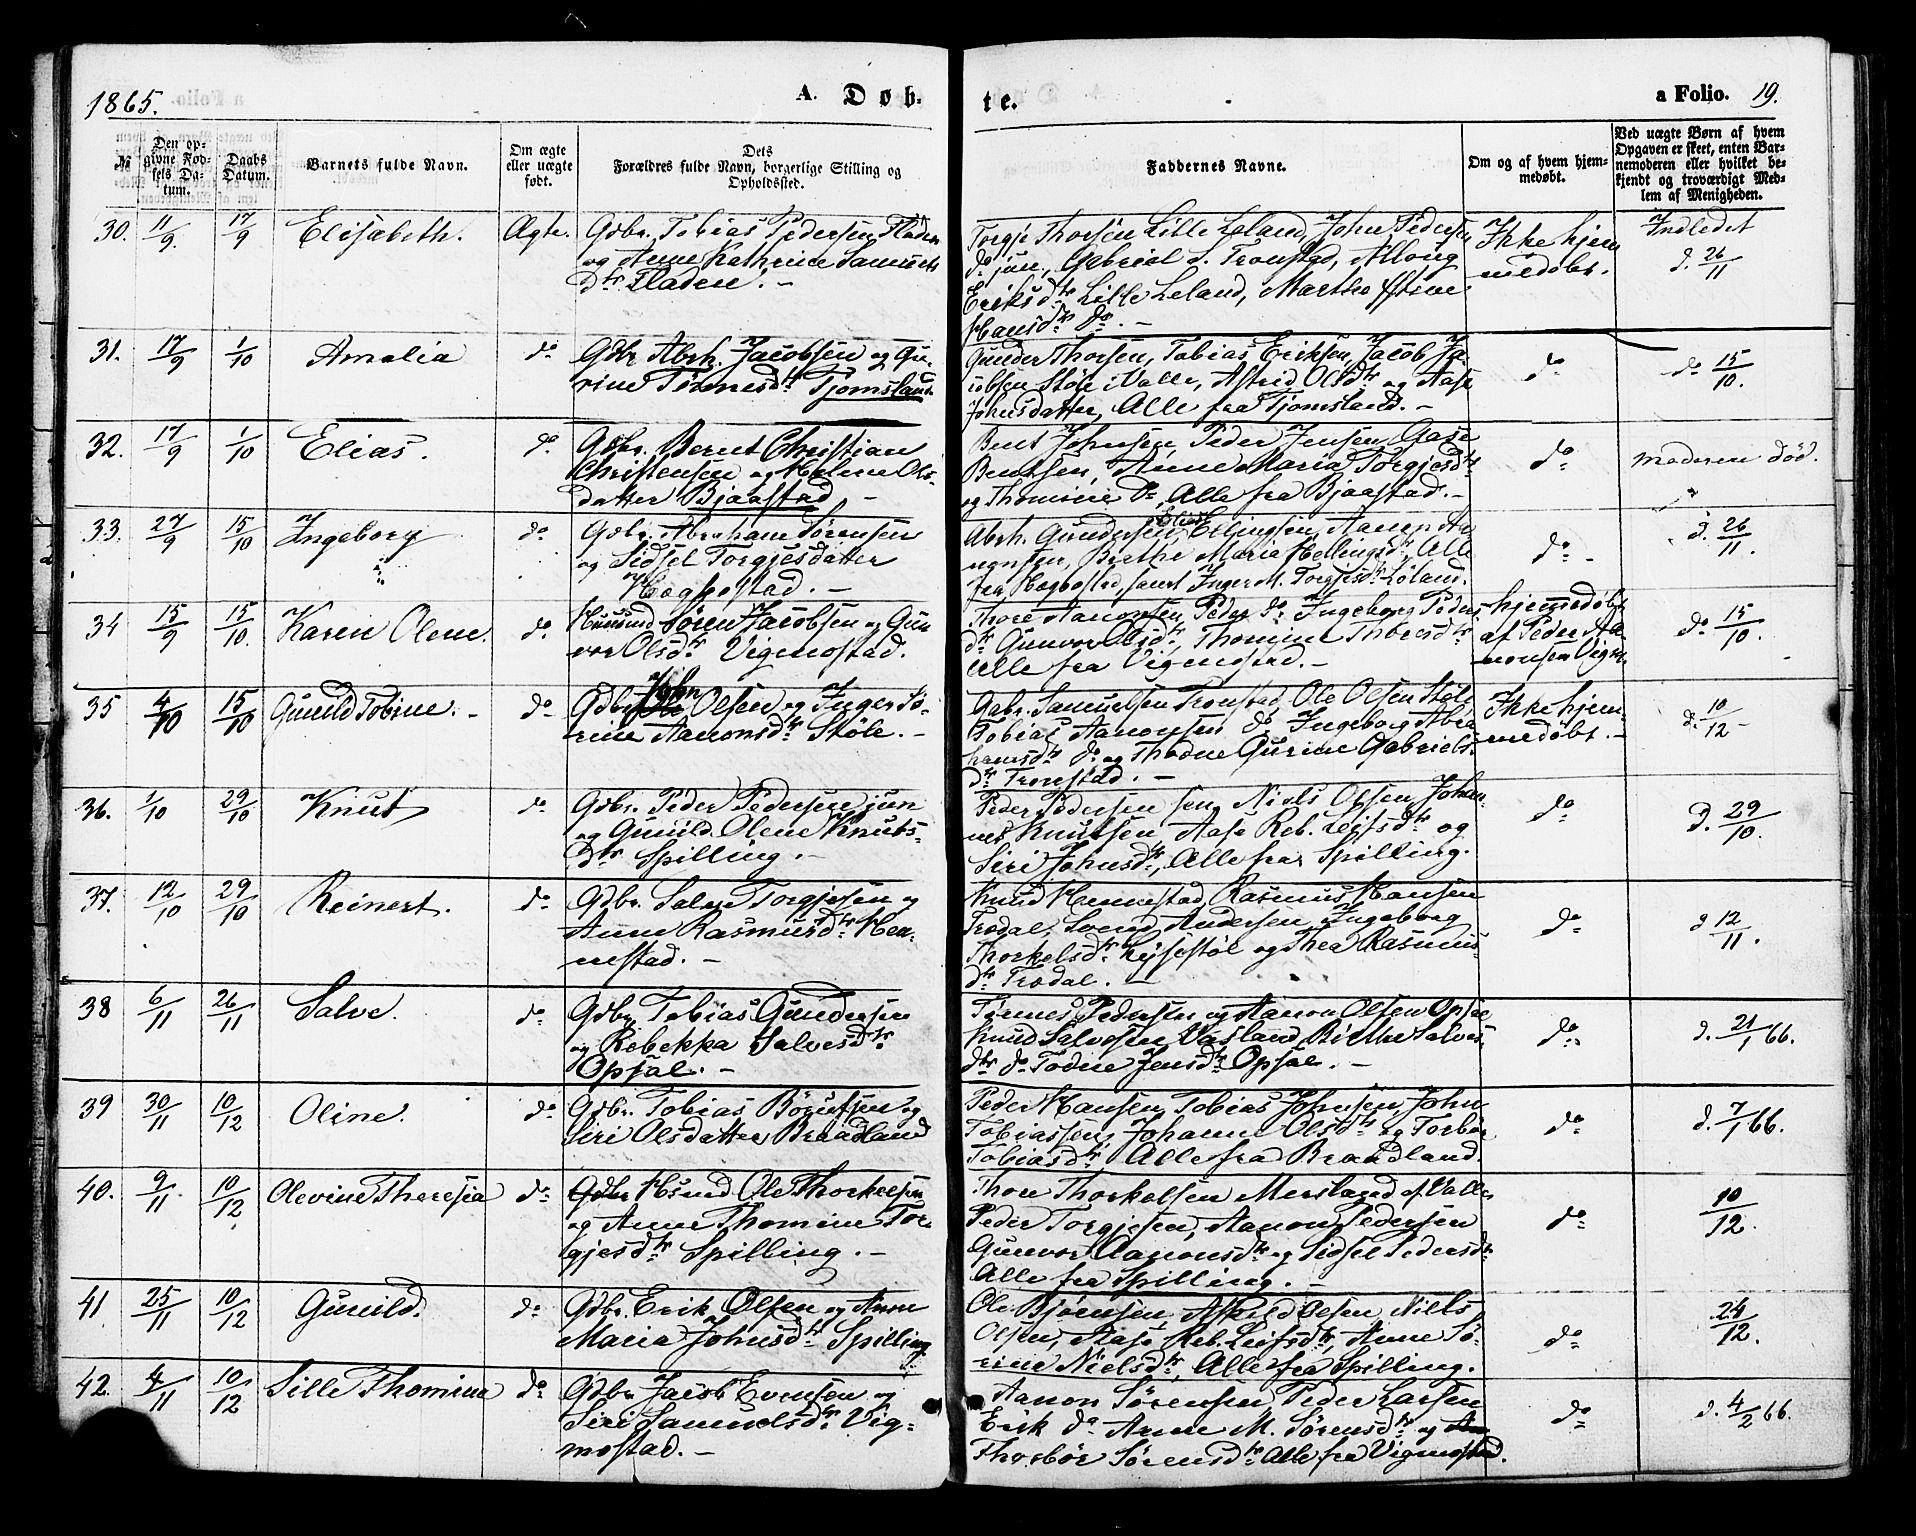 1865.
A. Døb-
te.
a Folio. 19.
№
Den op-
givne Fød-
sels Da-
tum.
Daabs
Datum.
Barnets fulde Navn.
Om ægte
eller uægte
født.
Dets
Forældres fulde Navn, borgerlige Stilling og
Opholdssted.
Faddernes Navne.
Om og af hvem hjem-
medøbt.
Ved uægte Børn af hvem
Opgaven er skeet, enten Bar-
nemoderen eller hvilket be-
kjendt og troværdigt Med-
lem af Menigheden.
30. 11/9. 17/9 Elisabeth. Ægte.
Gdbr. Tobias Pedersen Fladen
og Anne Kathrine Samuels
Dtr Fladen. -
Torgje Thorsen Lille Leland, John Pedersen
do jun, Gabriel S. Tronstad,
Eriksdtr Lille Leland, Marthe Stine
Hansdtr do. -
Ikke hjem
medøbt.
Indledet
d. 26/11
31. 17/9 1/10 Amalia do
Gdbr Abrh. Jacobsen og Gu-
rine Tønnesdtr Tjomsland.
Gunder Thorsen, Tobias Eriksen, Jacob Ja-
cobsen Støle i Valle, Astrid Olsdtr og Aase
Johnsdatter, Alle fra Tjomsland. -
do
do 15/10.
32. 17/9 1/10 Elias. do
Gdbr. Bernt Christian
Christensen og Malene Ols-
datter Bjaastad -
Bent Johnsen, Peder Jensen, Aase
Bentsen, Anne Maria Torgjesdtr
og Thomine do, Alle fra Bjaastad. -
do
moderen død.
33. 27/9 15/10 Ingeborg do
Gdbr. Abraham Sørensen
og Sidsel Torgjesdatter
Hægbostad. -
Abrh. Gundersen, Elias Ellingsen, Aanon Aa-
nensen, Birthe Maria Hellingsdtr, Alle
fra Hægbostad, samt Inger M. Torgjesdtr Løland.
do -
d. 26/11.
34 15/9 15/10. Karen Olene. do
Huusmd Søren Jacobsen og Gun-
vor Olsdtr Vigmostad.
Thore Aanonsen, Peder do Ingeborg Peders
dtr Gunvor Olsdtr, Thomine Thoresdtr
Alle fra Vigmostad. -
hjemmedøbt
af Peder Aa-
nonsen Vigm.
do 15/10.
35 4/10 15/10 Gunild Tobine. - do
Gdbr John Olsen og Inger Sø-
rine Aanonsdtr Støle. -
Gabr. Samuelsen Tronstad, Ole Olsen Støle
Tobias Aanonsen do, Ingeborg Abra
hamsdtr do og Thodne Gurine Gabriels
dtr Tronstad. -
Ikke hjem-
medøbt. -
d. 10/12 -
36. 1/10 29/10 Knut do
Gdbr. Peder Pedersen jun
og Gunild Olene Knuts-
dtr Spilling. -
Peder Pedersen sen, Niels Olsen, Johan-
nes Knutsen, Aase Reb. Leifsdtr og
Siri Johnsdtr, Alle fra Spilling.
do
d. 29/10.
37. 12/10 29/10 Reinert. do
Gdbr. Salve Torgjesen og
Anne Rasmusdtr Hen-
nestad. -
Knud Hennestad, Rasmus Hansen
Trædal, Svend Andersen, Ingeborg
Thorkelsdtr Lysestøl og Thea Rasmus-
dtr Trædal. -
do
d 12/11.
38 6/11 26/11 Salve. do
Gdbr Tobias Gundersen
og Rebekka Salvesdtr
Opsal. -
Tønnes Pedersen og Aanon Olsen Opsal
Knud Salvesen Vasland, Birthe Salves
dtr do Todne Jensdtr Opsal. -
do
d. 21/1 66.
39 30/11 10/12 Oline. do
Gdbr. Tobias Børutsen og
Siri Olsdatter Braadland
Peder Hansen, Tobias Johnsen, John
Tobiassen, Johanne Olsdtr og Torbor
Tobiasdtr Alle fra Braadland.
do
d. 7/1 66.
40. 9/11. 10/12 Olevine Theresia do
Gdbr Hsmd Ole Thorkelsen
og Anne Thomine Tor-
gjesdtr Spilling. -
Thore Thorkelsen Mersland af Valle
Peder Torgjesen, Aanon Pedersen
Gunvor Aanonsdtr og Sidsel Pedersdtr
Alle fra Spilling. -
do
10/12.
41 25/11 10/12 Gunild. do
Gdbr. Erik Olsen og Anne
Maria Johnsdtr Spilling
Ole Bjørensen, Astrid Olsen, Niels
Olsen, Aase Reb. Leifsdtr, Anne Sø-
rine Nielsdtr, Alle fra Spilling.
do
24/12.
42. 4/11 10/12 Sille Thomine do
Gdbr Jacob Evensen og
Siri Samuelsdtr Vig-
mostad. -
Aanon Sørensen, Peder Larsen
Erik do Anne M. Sørensdtr og
Thorbør Sørensdtr Alle fra Vigmostad.
do
d. 4/2 66.